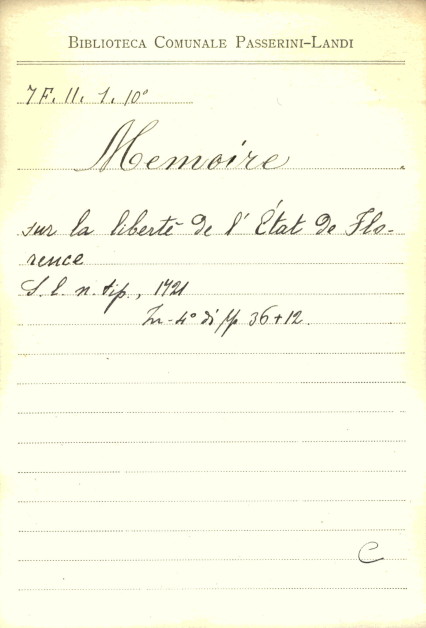 BIBLIOTECA COMUNALE PASSERINI-LANDI
7F. II. 1. 10°
Memoire
sur la liberté de l' État de Flo-
rence
S. l. n. tip., 1721
In-4° di pp 36+12.
C